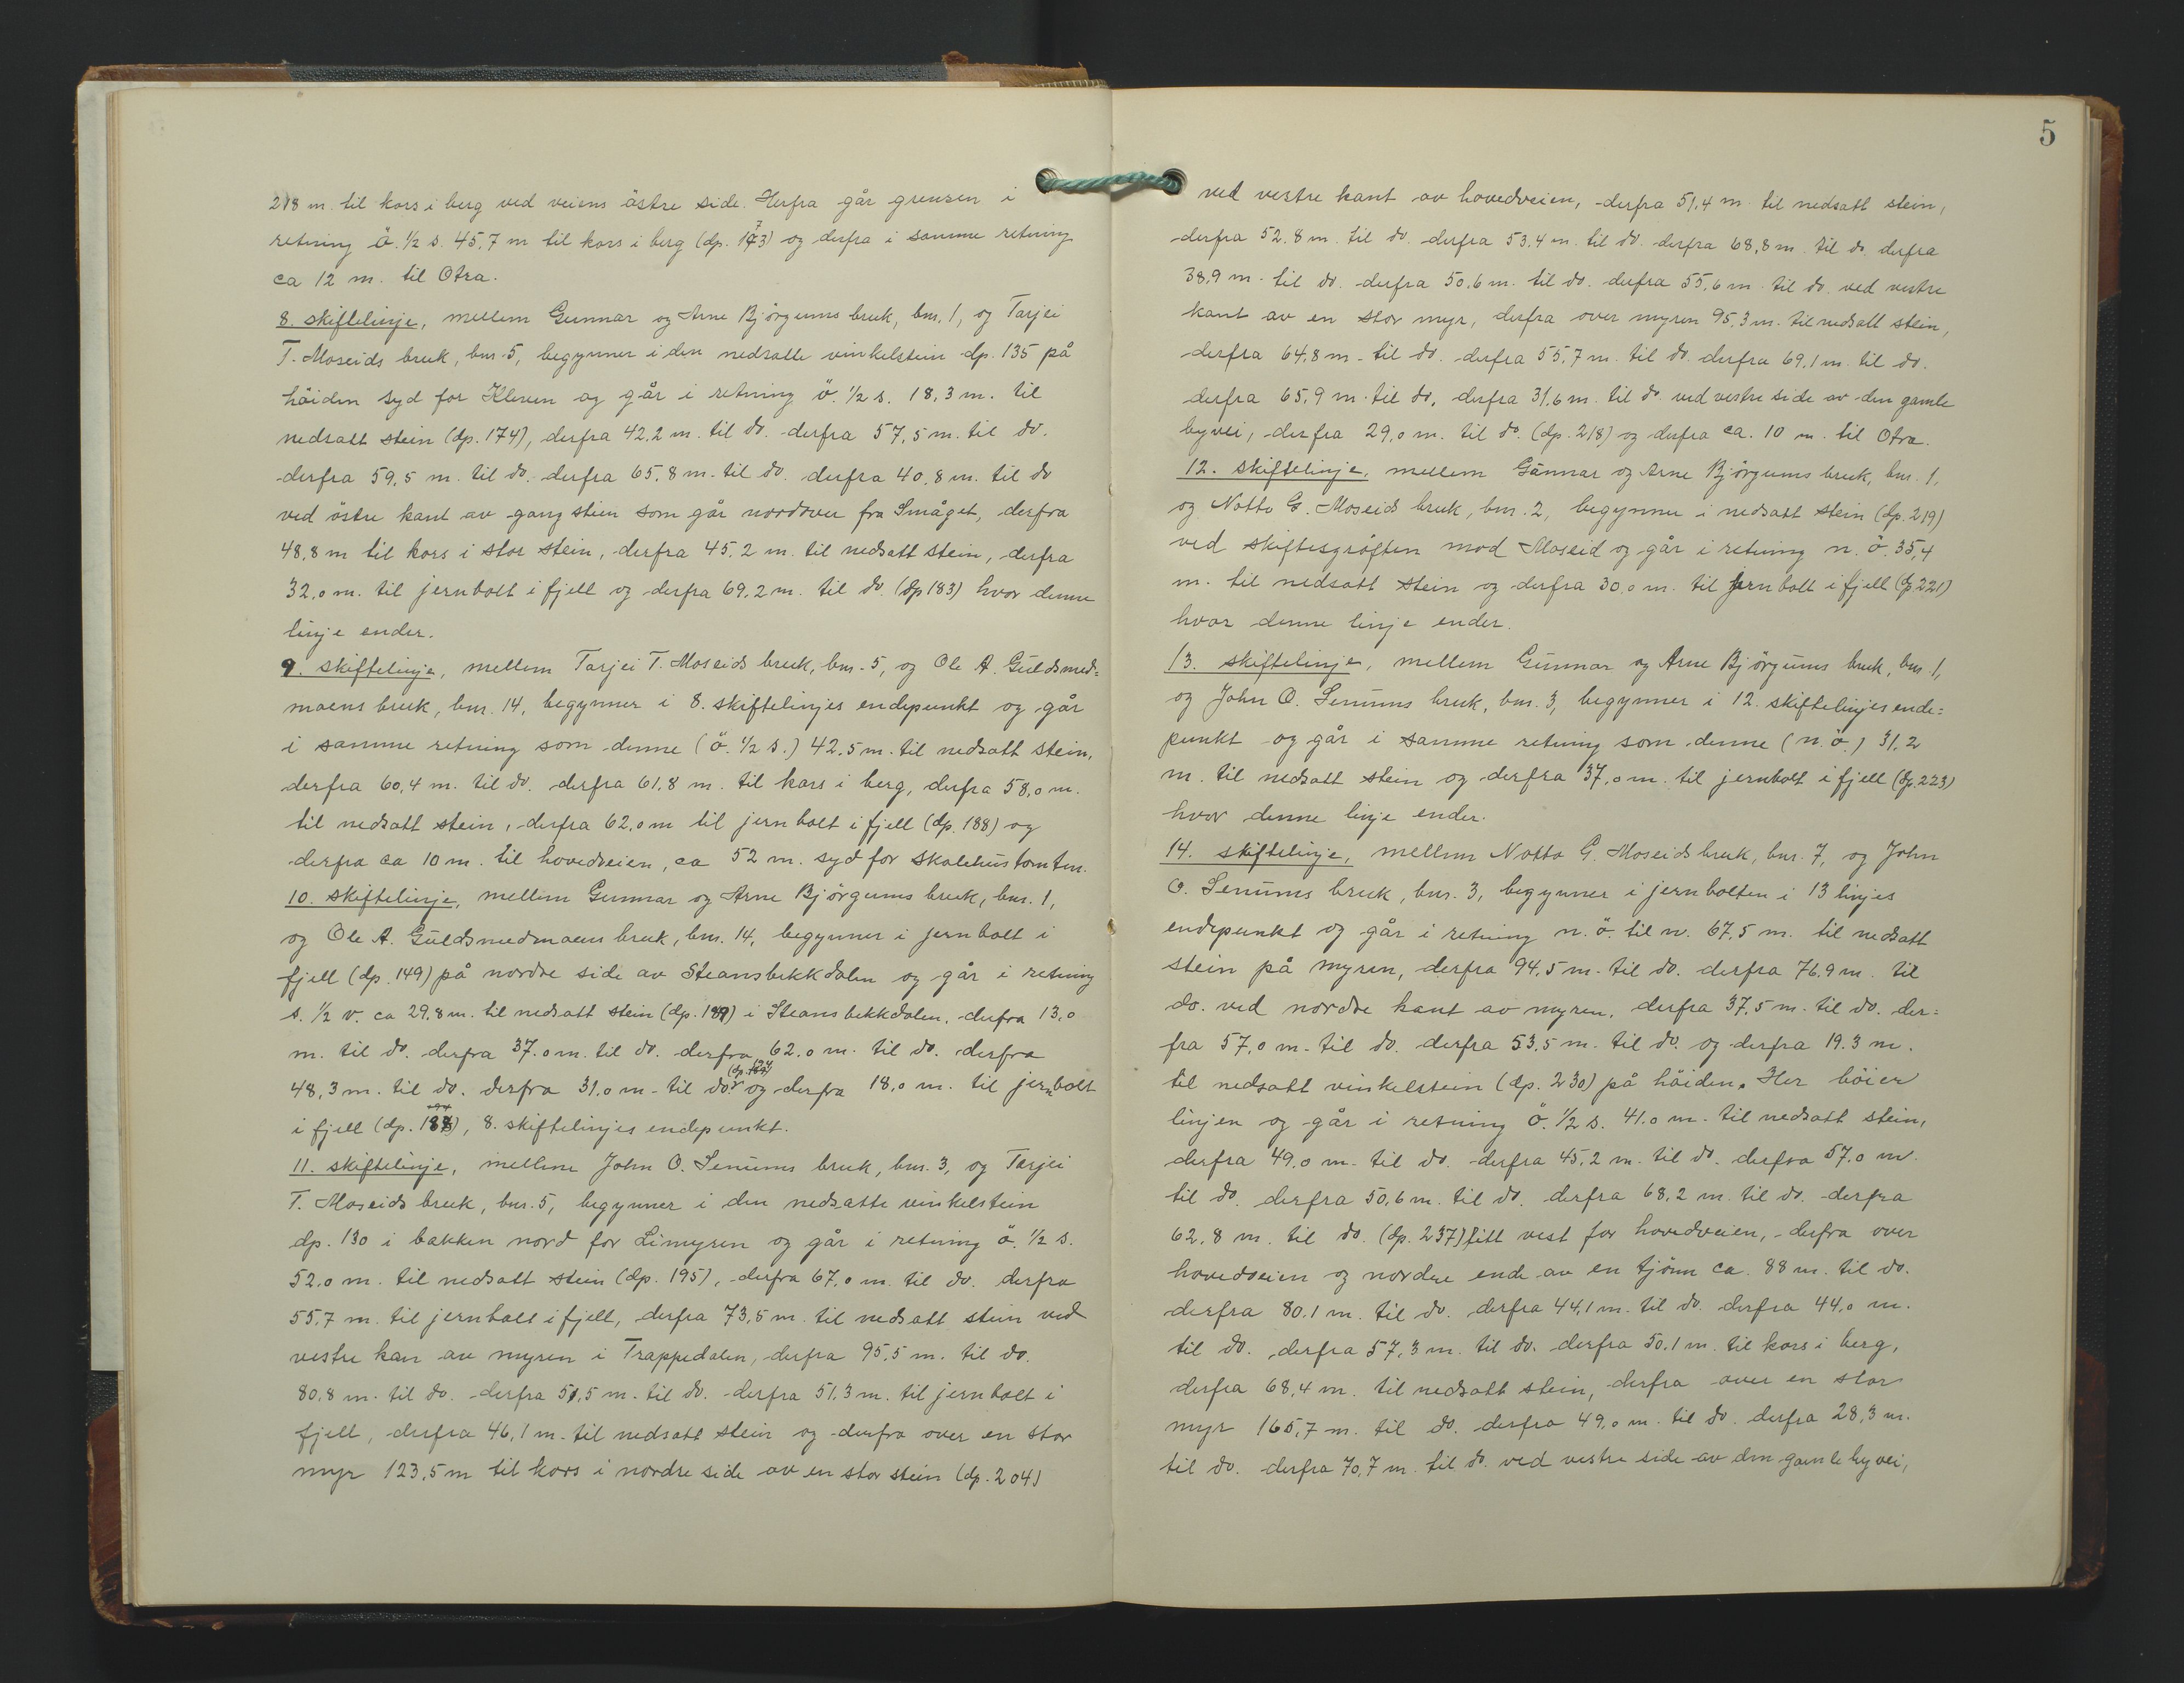 218 m. til kors i berg ved veiens östre side. Herfra går grensen i
retning ö. 1/2 s. 45,7 m til kors i berg (dp. 173) og derfra i samme retning
ca 12 m. til Otra.
8. skiftelinje, mellem Gunnar og Arne Bjørgums bruk, bnr. 1, og Tarjei
T. Moseids bruk, bnr. 5, begynner i den nedsatte vinkelstein dp. 135 på
höiden syd for Kleven og går i retning ö. 1/2 s. 18,3 m. til
nedsatt stein (dp. 174), derfra 42,2 m. til do. derfra 57,5 m. til do.
derfra 59,5 m. til do. derfra 65,8 m. til do. derfra 40,8 m. til do
ved östre kant av gangstien som går nordover fra Småget, derfra
48,8 m til kors i stor stein, derfra 45,2 m. til nedsatt stein, derfra
32,0 m. til jernbolt i fjell og derfra 69,2 m. til do. (dp 183) hvor denne
linje ender.
9. skiftelinje, mellem Tarjei T. Moseids bruk, bnr. 5, og Ole A. Guldsmed=
moens bruk, bnr. 14, begynner i 8. skiftelinjes endepunkt og går
i samme retning som denne (ö. 1/2 s.) 42,5 m. til nedsatt stein,
derfra 60,4 m. til do. derfra 61,8 m. til kors i berg, derfra 58,0 m.
til nedsatt stein, derfra 62,0 m til jernbolt i fjell (dp. 188) og
derfra ca 10 m. til hovedveien, ca 52 m. syd for skolehustomten.
10. skiftelinje, mellem Gunnar og Arne Bjørgums bruk, bnr. 1,
og Ole A. Guldsmedmoens bruk, bnr. 14, begynner i jernbolt i
fjell (dp. 149) på nordre side av Steansbekkdalen og går i retning
s. 1/2 v. ca 29,8 m. til nedsatt stein (dp. 189) i Steansbekkdalen, derfra 13,0
m. til do. derfra 37,0 m. til do. derfra 62,0 m. til do. derfra
48,3 m. til do. derfra 31,0 m. til do. (dp. 194) og derfra 18,0 m. til jernbolt
i fjell (dp. 183), 8. skiftelinjes endepunkt.
11. skiftelinje, mellem John O. Senums bruk, bnr. 3, og Tarjei
T. Moseids bruk, bnr. 5, begynner i den nedsatte vinkelstein
dp. 130 i bakken nord for Limyren og går i retning ö. 1/2 s.
52,0 m. til nedsatt stein (dp. 195), derfra 67,0 m. til do. derfra
55,7 m. til jernbolt i fjell, derfra 73,5 m. til nedsatt stein ved
vestre kan av myren i Trappedalen, derfra 95,5 m. til do.
80,8 m. til do. derfra 51,5 m. til do. derfra 51,3 m. til jernbolt i
fjell, derfra 46,1 m. til nedsatt stein og derfra over en stor
myr 123,5 m til kors i nordre side av en stor stein (dp. 204)
5
ved vestre kant av hovedveien, derfra 51,4 m. til nedsatt stein,
derfra 52,8 m. til do. derfra 53,4 m. til do. derfra 68,8 m. til do. derfra
38,9 m. til do. derfra 50,6 m. til do. derfra 55,6 m. til do. ved vestre
kant av en stor myr, derfra over myren 95,3 m. til nedsatt stein,
derfra 64,8 m. til do. derfra 55,7 m. til do. derfra 69,1 m. til do.
derfra 65,9 m. til do, derfra 31,6 m. til do. ved vestre side av den gamle
byvei, derfra 29,0 m. til do. (dp. 218) og derfra ca. 10 m. til Otra.
12. skiftelinje, mellem Gunnar og Arne Bjørgums bruk, bnr. 1,
og Notto G. Moseids bruk, bnr. 2, begynner i nedsatt stein (dp. 219)
ved skiftesgröften mod Moseid og går i retning n. ö. 35,4
m. til nedsatt stein og derfra 30,0 m. til jernbolt i fjell (dp 221)
hvor denne linje ender.
13. skiftelinje, mellem Gunnar og Arne Bjørgums bruk, bnr. 1,
og John O. Senums bruk, bnr. 3, begynner i 12. skiftelinjes ende=
punkt og går i samme retning som denne (n. ö.) 31,2
m. til nedsatt stein og derfra 37,0 m. til jernbolt i fjell (dp. 223)
hvor denne linje ender.
14. skiftelinje, mellem Notto G. Moseids bruk, bnr. 7, og John
O. Senums bruk, bnr. 3, begynner i jernbolten i 13 linjes
endepunkt og går i retning n. ö. til n. 67,5 m. til nedsatt
stein på myren, derfra 94,5 m. til do. derfra 76,9 m. til
do. ved nordre kant av myren, derfra 37,5 m. til do. der=
fra 57,0 m. til do. derfra 53,5 m. til do. og derfra 19,3 m.
til nedsatt vinkelstein (dp. 230) på höiden. Her böier
linjen og går i retning Ö. 1/2 s. 41,0 m. til nedsatt stein,
derfra 49,0 m. til do. derfra 45,2 m. til do. derfra 57,0 m.
til do. derfra 50,6 m. til do. derfra 68,2 m. til do. derfra
62,8 m. til do. (dp. 237) litt vest for hovedveien, derfra over
hovedveien og nordre ende av en tjönn ca. 88 m. til do.
derfra 80,1 m. til do. derfra 44,1 m. til do. derfra 44,0 m.
til do. derfra 57,3 m. til do. derfra 50,1 m. til kors i berg,
derfra 68,4 m. til nedsatt stein, derfra over en stor
myr 165,7 m. til do. derfra 49,0 m. til do. derfra 28,3 m.
til do. derfra 70,7 m. til do. ved vestre side av den gamle byvei,